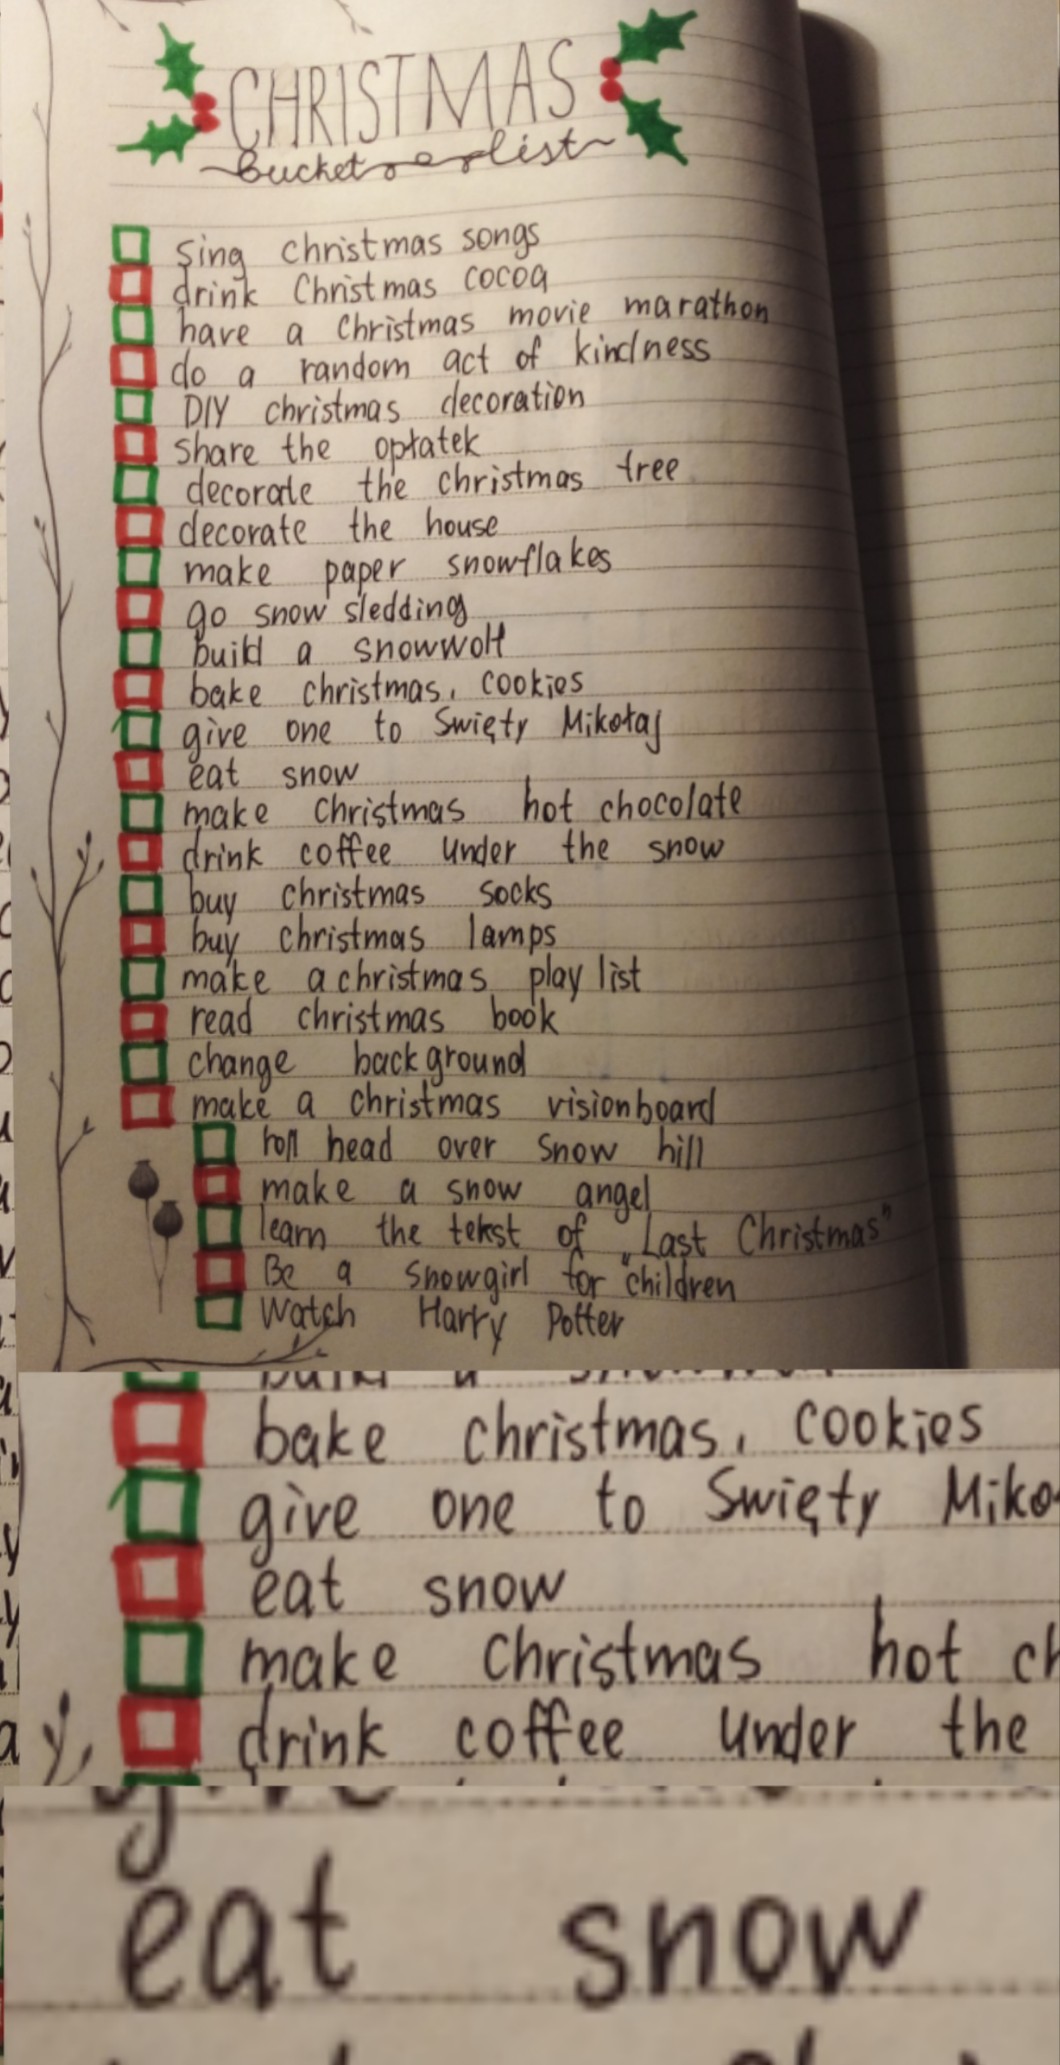 CHRISTMAS
bucket list
Sing christmas songs
drink Christmas cocoa
have a christmas movie marathon
do a random act of kindness
DIY christmas decoration
share the opłatek
decorate the christmas tree
decorate the house
make paper snowflakes
go snow sledding
build a snowwolf
bake christmas, cookies
give one to Święty Mikołaj
eat snow
make christmas hot chocolate
drink coffee under the snow
buy christmas socks
buy christmas lamps
make a christmas play list
read christmas book
change background
make a christmas visionboard
roll head over snow hill
make a snow angel
learn the tekst of „Last Christmas”
Be a snowgirl for children
Watch Harry Potter
bake christmas, cookies
give one to Święty Miko
eat snow
make christmas hot ch
drink coffee under the
eat snow